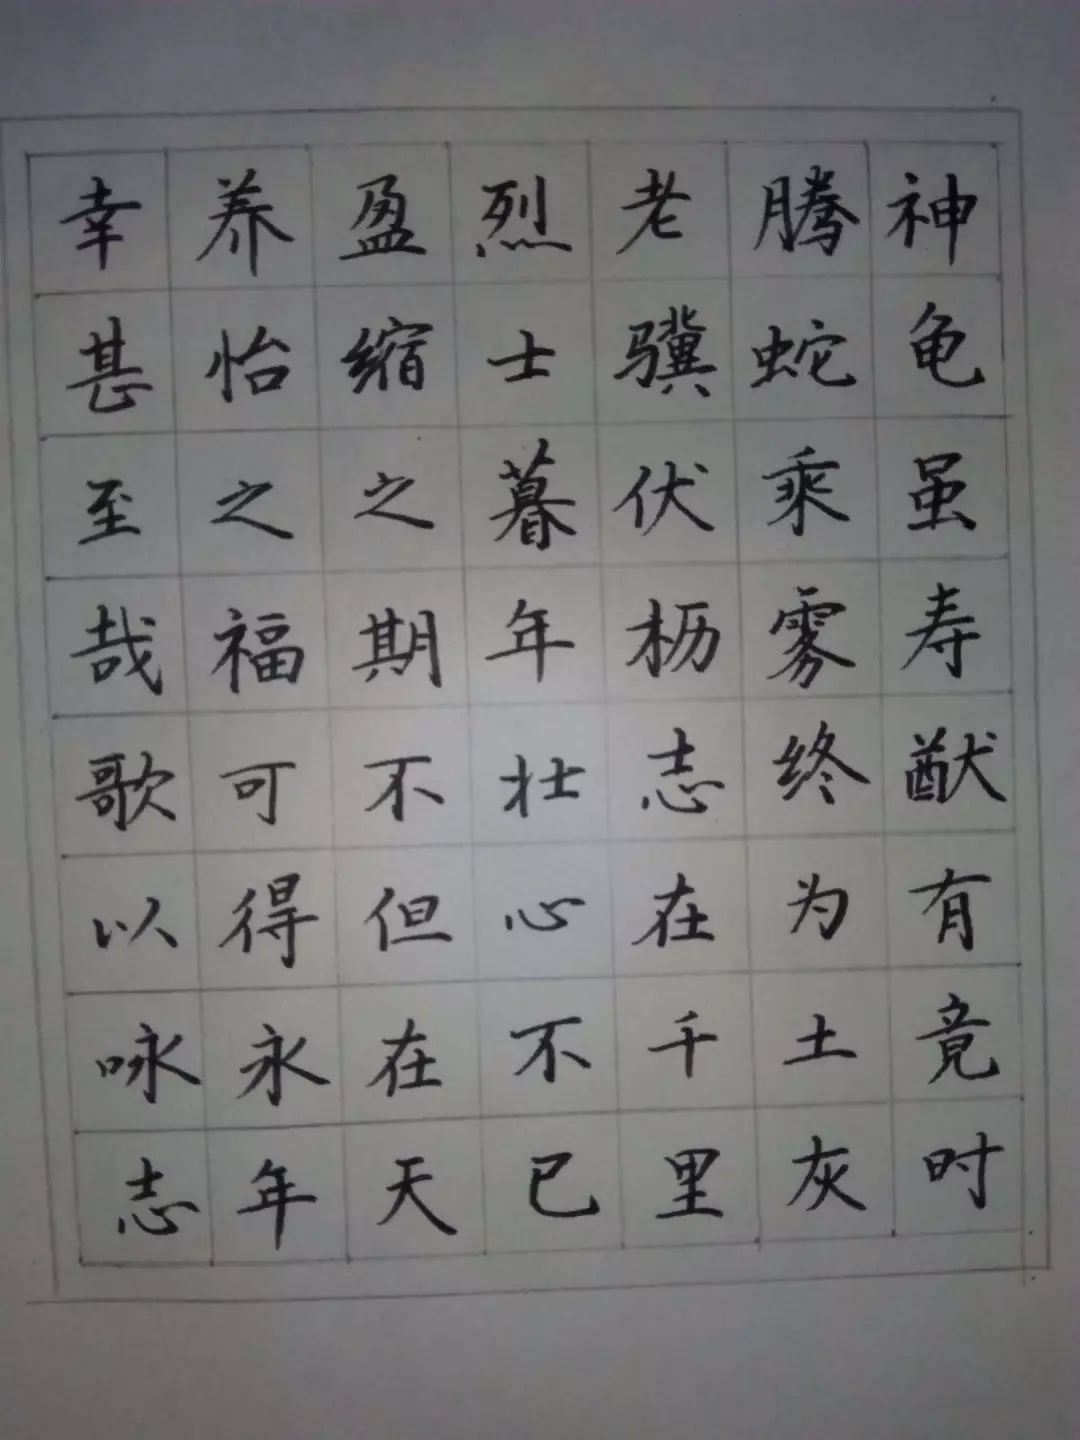 神龟虽寿猷有竟时
腾蛇乘雾终为土灰
老骥伏枥志在千里
烈士暮年壮心不已
盈缩之期不但在天
养怡之福可得永年
幸甚至哉歌以咏志